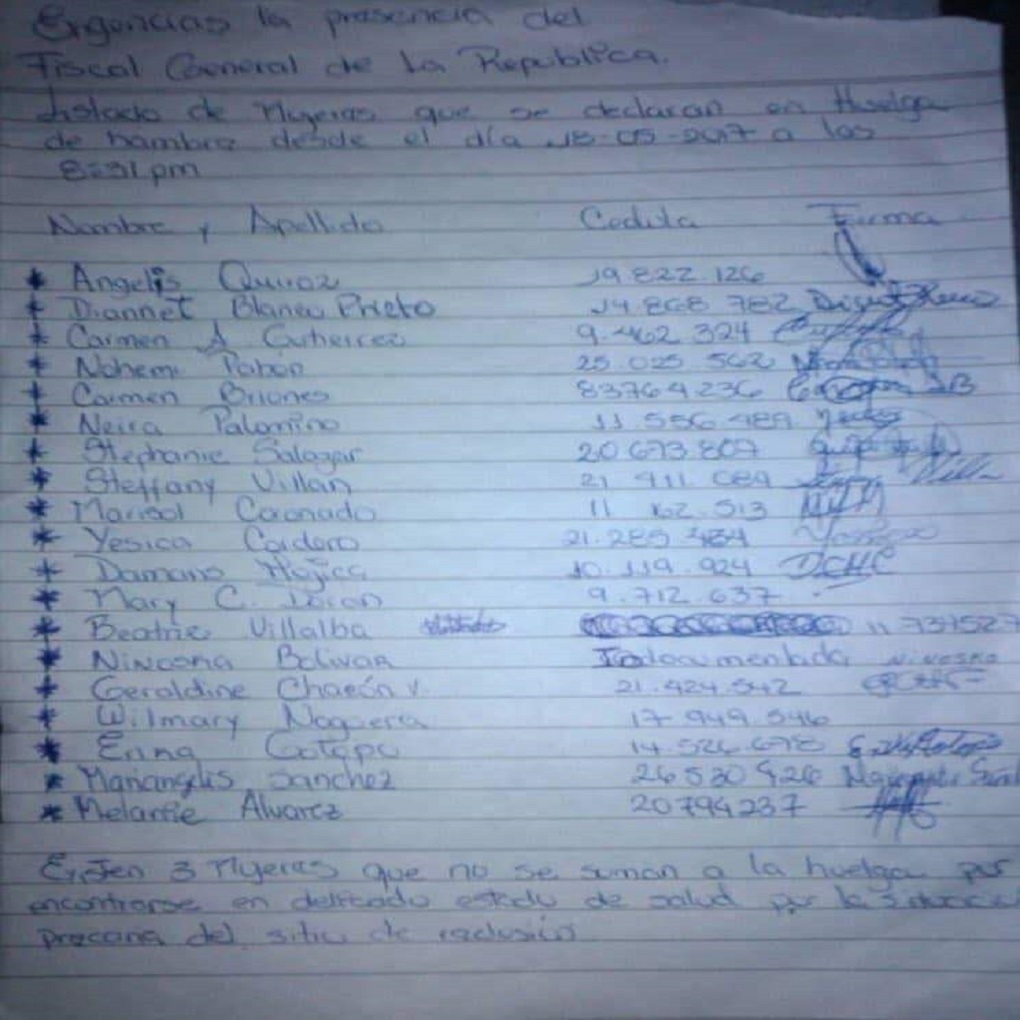 la presencia del
Fiscal General de La Republica.
Listado de Mujeres que se declaran en Huelga
de hambre desde el día 18-05-2017 a las
8:31 pm
Nombre y Apellido Cedula Firma
* Angelis Quiroz 19.822.126
* Diannet Blanco Prieto 14.868.782
* Carmen A Gutierrez 9.462.324
* Nohemi Pabon 25.025.562
* Carmen Briones 83764236
* Neira Palomino 11.556.489
* Stephanie Salazar 20.673.807
* Steffany Villan 21.911.689
* Marisol Coronado 11 162.513
* Yesica Cordero 21.289.484
* Damaris Mojica 10.119.924 DCHC
* Mary C. 9.712.637
* Beatriz Villalba 11 737527
* Bolivar Indocumentada
* Geraldine Chacón V. 21.424.542
* Wilmary Noguera 17.949.546
* Erina Cotapo 14.526.678
* Mariangelis Sanchez 26530426
* Melanie Alvarez 20794237
Existen 3 Mujeres que no se suman a la huelga por
encontrarse en delicado estado de salud por la
precaria del sitio de reclusión